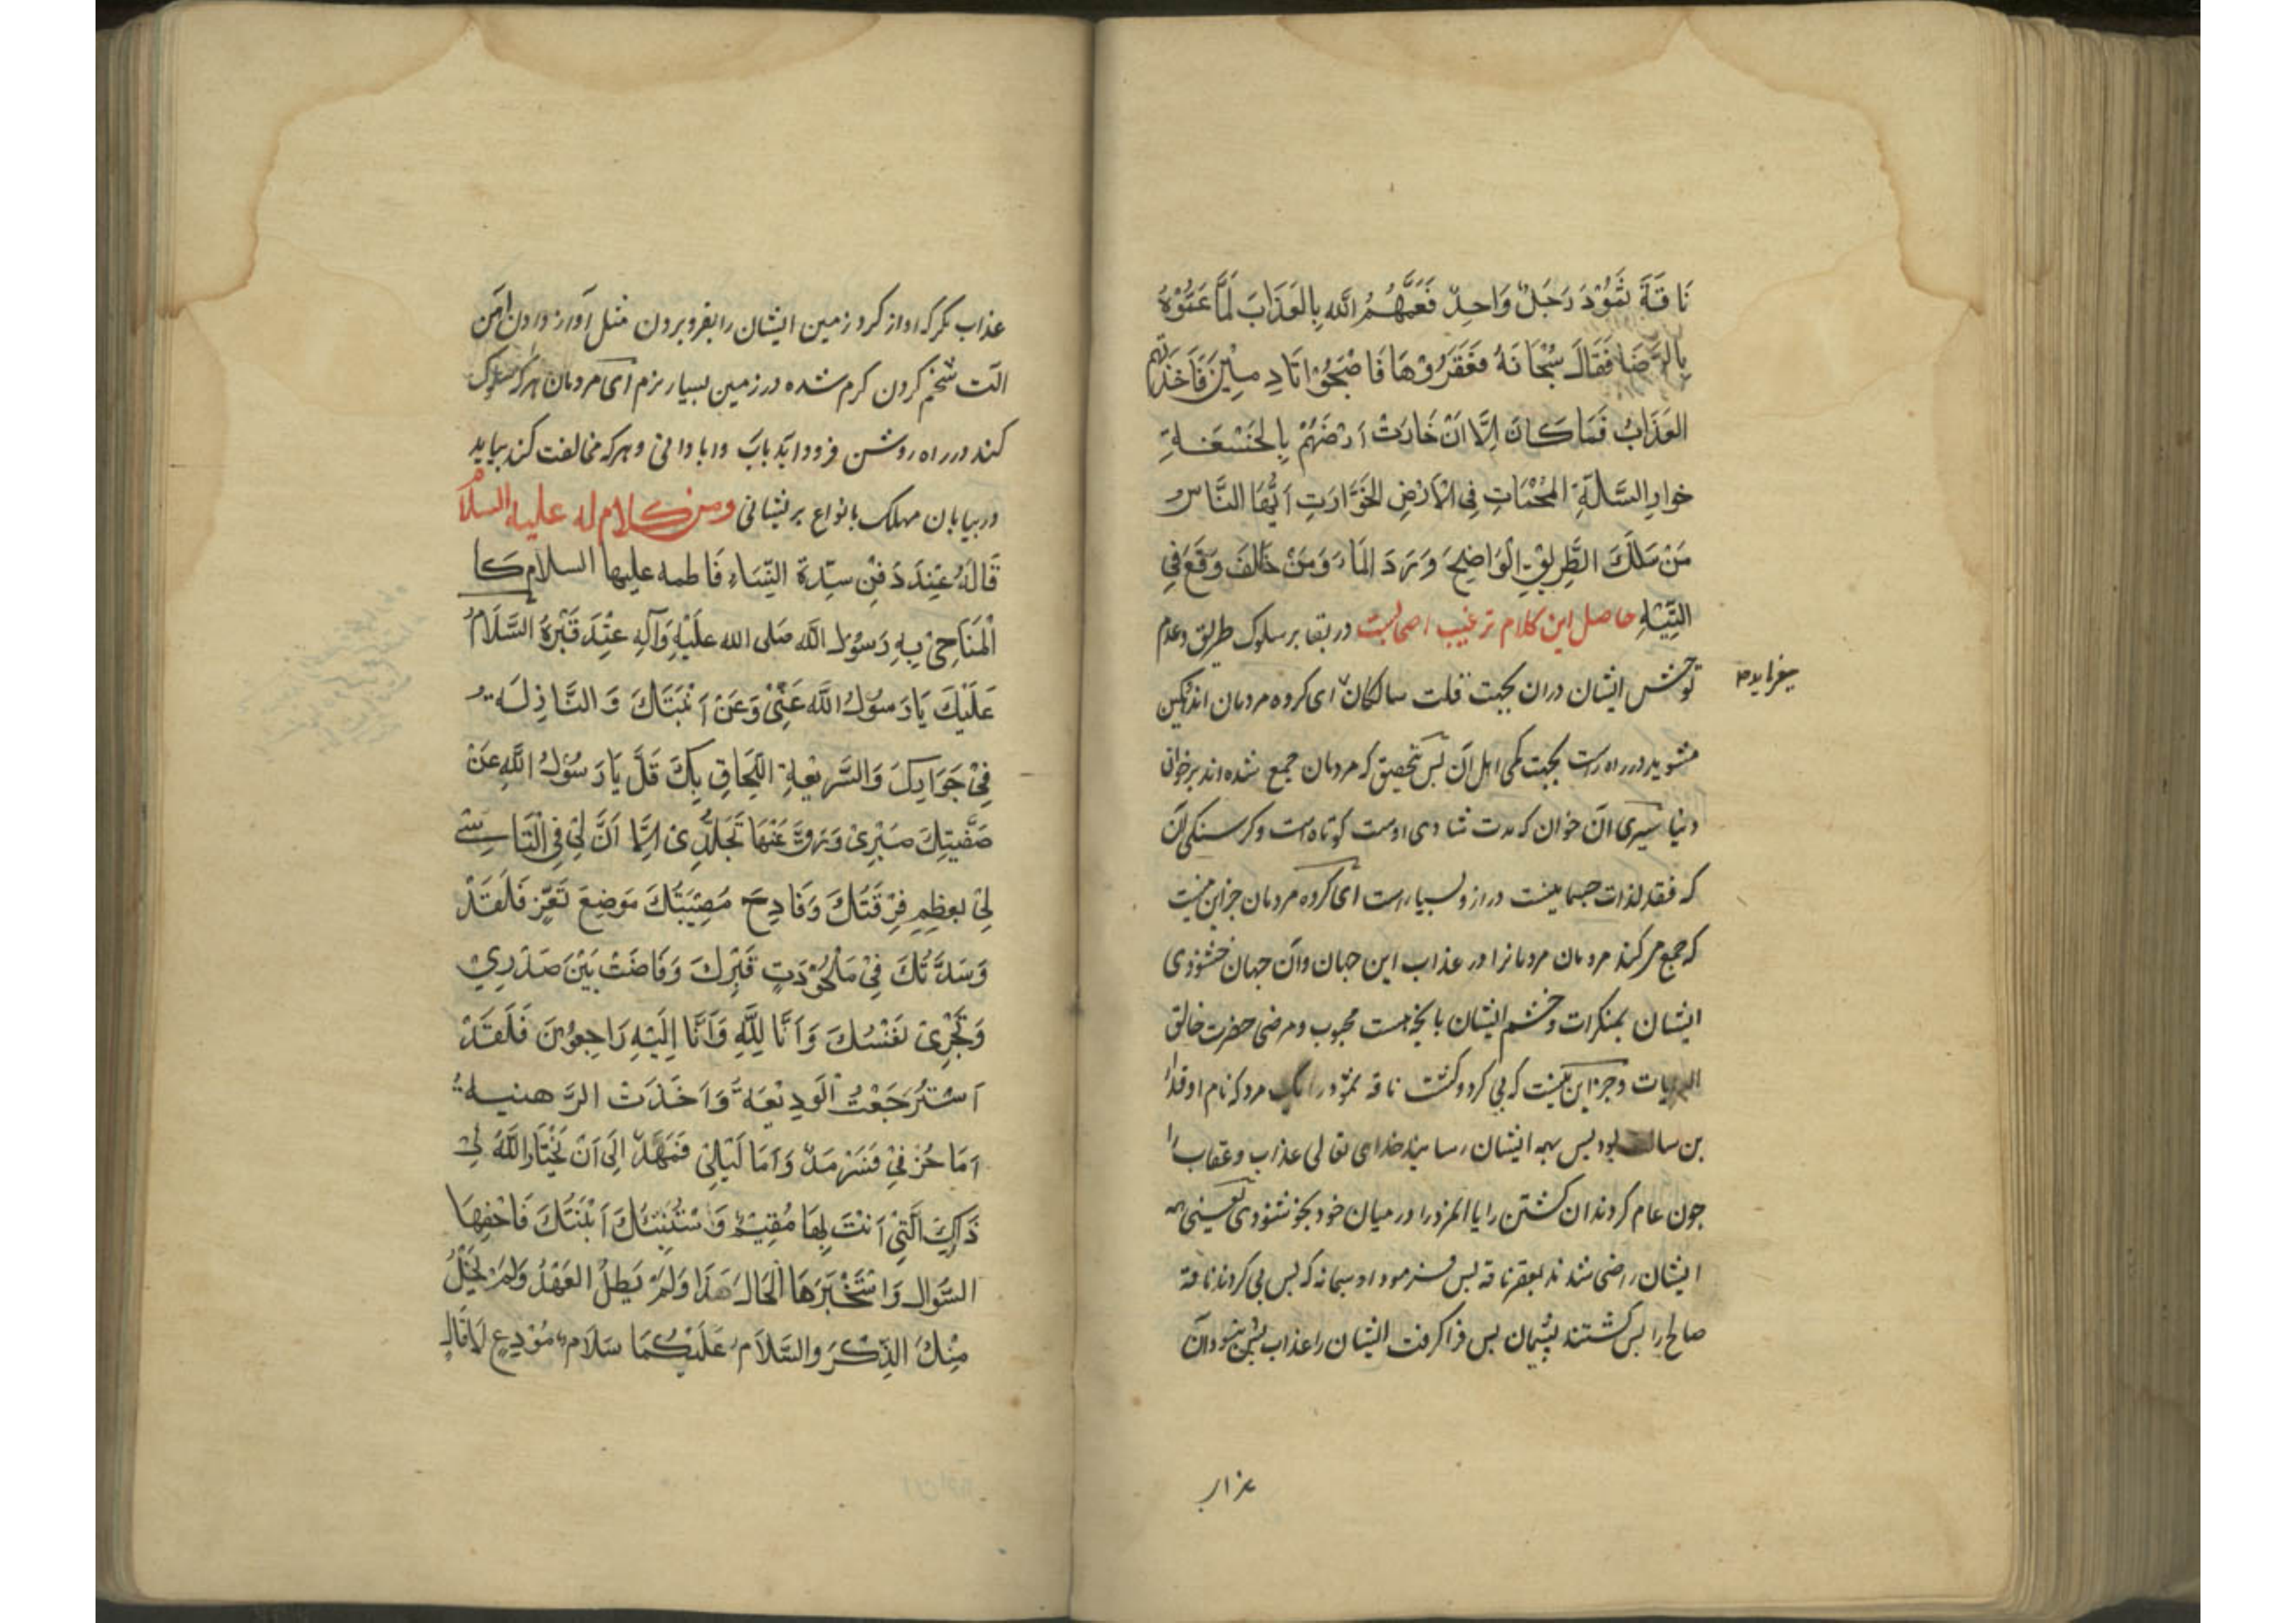 نَاقَةَ ثَمُوْدَ رَجُلٌ وَاحِدٌ فَعَمَّهُمُ اللّه بِالعَذَابَ لَمَّا عَمُّوْهُ
بِالرَّضَا فَقَالَ سُبْحَانَهُ فَعَقَرُوْهَا فَاصْبَحُوْا نَادِمِيْنَ فَاَخَذَهُم
العَذَابُ فَمَا كَانَ اِلَّا اَنْ خَارَتْ اَرْضُهُمْ بِالخَسْفَةِ
خوار السَّكّةِ المُحْمَاتِ فِي الْاَرْضِ الخَوَّارَتِ اَيُّهَا النَّاسُ
مَنْ سَلَكَ الطَّرِيْقَ الْوَاضِحَ وَرَدَ المَاءَ وَمَنْ خَالَفَ وَقَعَ فِي
التِّيْهِ حاصل این کلام ترغیب اصحابست در بقا بر سلوک طریق و عدم
توحش ایشان دران بجهت قلت سالکان ای کروه مردمان اندوهکین
میفرماید
مشوید در راه راست بجهت کمی اهل آن پس بتحقیق که مردمان جمع شده اند بر خوان
دنیا سیری آن خوان که مدت شادی اوست کوتاه است و کرسنکی آن
که فقد لذات جسمانیست دراز و بسیار است ای کروه مردمان جز این نیست
که جمع میکند مردمان مردمانرا در عذاب این جهان وآن جهان خشنودی
ایشان بمنکرات و خشم ایشان بانچه هست محبوب و مرضی حضرت خالق
البریات و جز این نیست که پی کرد و کشت ناقه ثمود را یک مرد که نام او قدار
بن سالف بود پس همه ایشان رسانید خدای تعالی عذاب و عقاب را
چون عام کردند ان کشتن را یا المزد را در میان خود بخوشنودی یعنی همه
ایشان راضی شدند بعقر ناقه پس فرمود او سبحانه که پس پی کردند ناقة
صالح را پس کشتند پشیمان پس فرا کرفت ایشان را عذاب پس نبود آن
عذاب
عذاب مکر که اواز کرد زمین ایشان را بفرو بردن مثل آواز دادن آهن
الت شخم کردن کرم شده در زمین بسیار نرم ای مردمان هر که سلوک
کند در راه روشن فرود اید باب وابادانی و هر که مخالفت کند بیاید
در بیابان مهلک بانواع پریشانی ومن كلام له عليه السلام
قَالَهُ عِنْدَ دَفْنِ سيِّدة النِّسَاءِ فَاطمه عليها السلام كَا
الْمُنَاجِيْ بِهِ رَسُوْلَ اللّه صَلى الله عَلَيْهِ وَآلِهِ عِنْدَ قَبْرِهُ السَّلَامُ
عَلَيْكَ يَارَسُوْلَ اللَّه عَنِّيْ وَعَنْ اَبْنَتَكَ وَ النَّازِلَةِ
فِيْ جَوَارِكَ وَالسَّرِيْعَةِ اللِّحَاقِ بِكَ قَلَّ يَا رَسُوْلَ اللَّهِ عَنْ
صَفِيَّتِكَ صَبْرِيْ وَرَقَّ عَنْهَا تَجَلُّدِىْ اِلَّا اَنَّ لِيْ فِي التَّاسِّيْ
لِيْ بعِظِمِ فِرْقَتَكَ وَفَادِحِ مُصِيْبَتُكَ مَوضِعَ تَعَزٍّ فَلَقَدْ
وَسَدْتُكَ فِيْ مَلْحُوْدَتِ قَبْرِكَ وَفَاضَتْ بَيْنَ صَدْرِيْ
وَنَحْرِىْ نَفْسُكَ وَاَنَّا لِلَّهِ وَاَنَّا اِلَيْهِ رَاجِعُوْنَ فَلَقَدْ
اَسْتُرْجَعْتُ الْوَدِيْعَةُ وَاَخَذَتْ الرَّهنيةُ
اَمَا حُزْنِيْ فَسَرْمَدٌ وَاَمَا لَيْلِيْ فَمُهَّدٌ اِلَى اَنْ يَخْتَارَ اللَّهُ لِيْ
دَارِكَ الَّتِيْ اَنْتَ بِهَا مُقِيْمٌ وَسْتُنِبّئُكَ اَبْنَتُكَ فَاحْفِهَا
السَّوال وَاسْتَخْبِرَهَا الْحَالَ هَذَا وَلَمْ يَطلُ العَهْدُ وَلَمْ يَخْلُ
مِنْكَ الذِّكْرَ والسَّلَامُ عَلَيْكُمَا سَلَام مُوْدِعٍ لَا قَالٍ